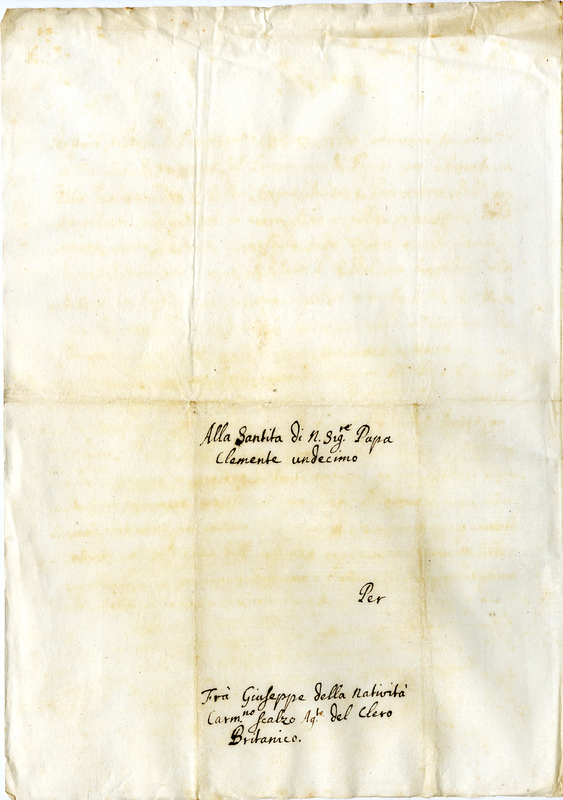 Alla Santita di N. Sig.re Papa
Clemente undecimo
Per
Frà Giuseppe della Natività
Carm.no scalzo Ag.te del Clero
Britanico.